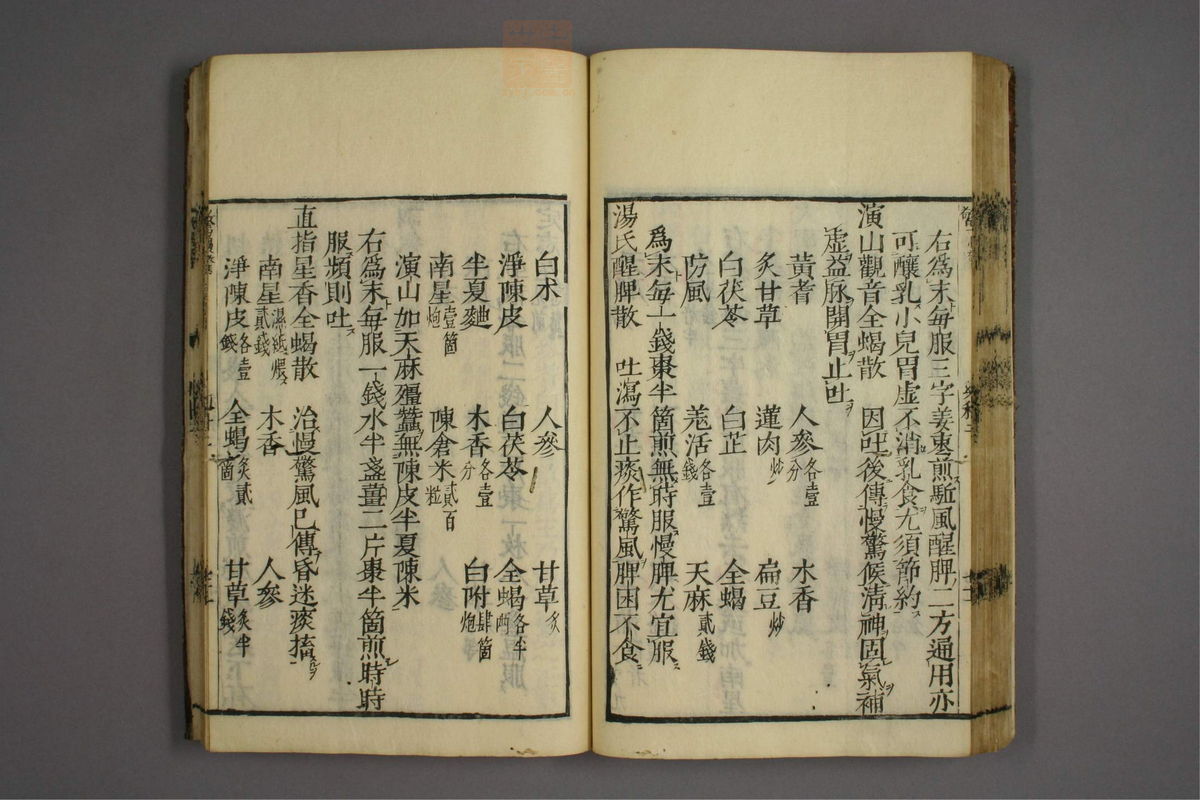 右爲末每服三字姜棗煎䭾風醒脾二方通用亦
可釀乳小兒胃虛不消乳食尤須節約
演山觀音全蝎散　因吐後傳慢驚候清神固氣補
虛益脉開胃止吐
黄耆　人參各壹分　木香
炙甘草　蓮肉炒　扁豆炒
白茯苓　白芷　全蝎
防風　羗活各壹錢　天麻貳錢
爲末每一錢棗半箇煎無時服慢脾尤宜服
湯氏醒脾散　吐瀉不止痰作驚風脾困不食
白术　人參　甘草炙
淨陳皮　白茯苓　全蝎各半兩
半夏麯　木香各壹分　白附肆箇炮
南星壹箇炮　陳倉米貳百粒
演山加天麻殭蠶無陳皮半夏陳米
右爲末每服一錢水半盞薑二片棗半箇煎時時
服頻則吐
直指星香全蝎散　治慢驚風巳傳昏迷痰搐
南星濕紙煨貳錢　木香　人參
淨陳皮各壹錢　全蝎炙貳箇　甘草炙半錢